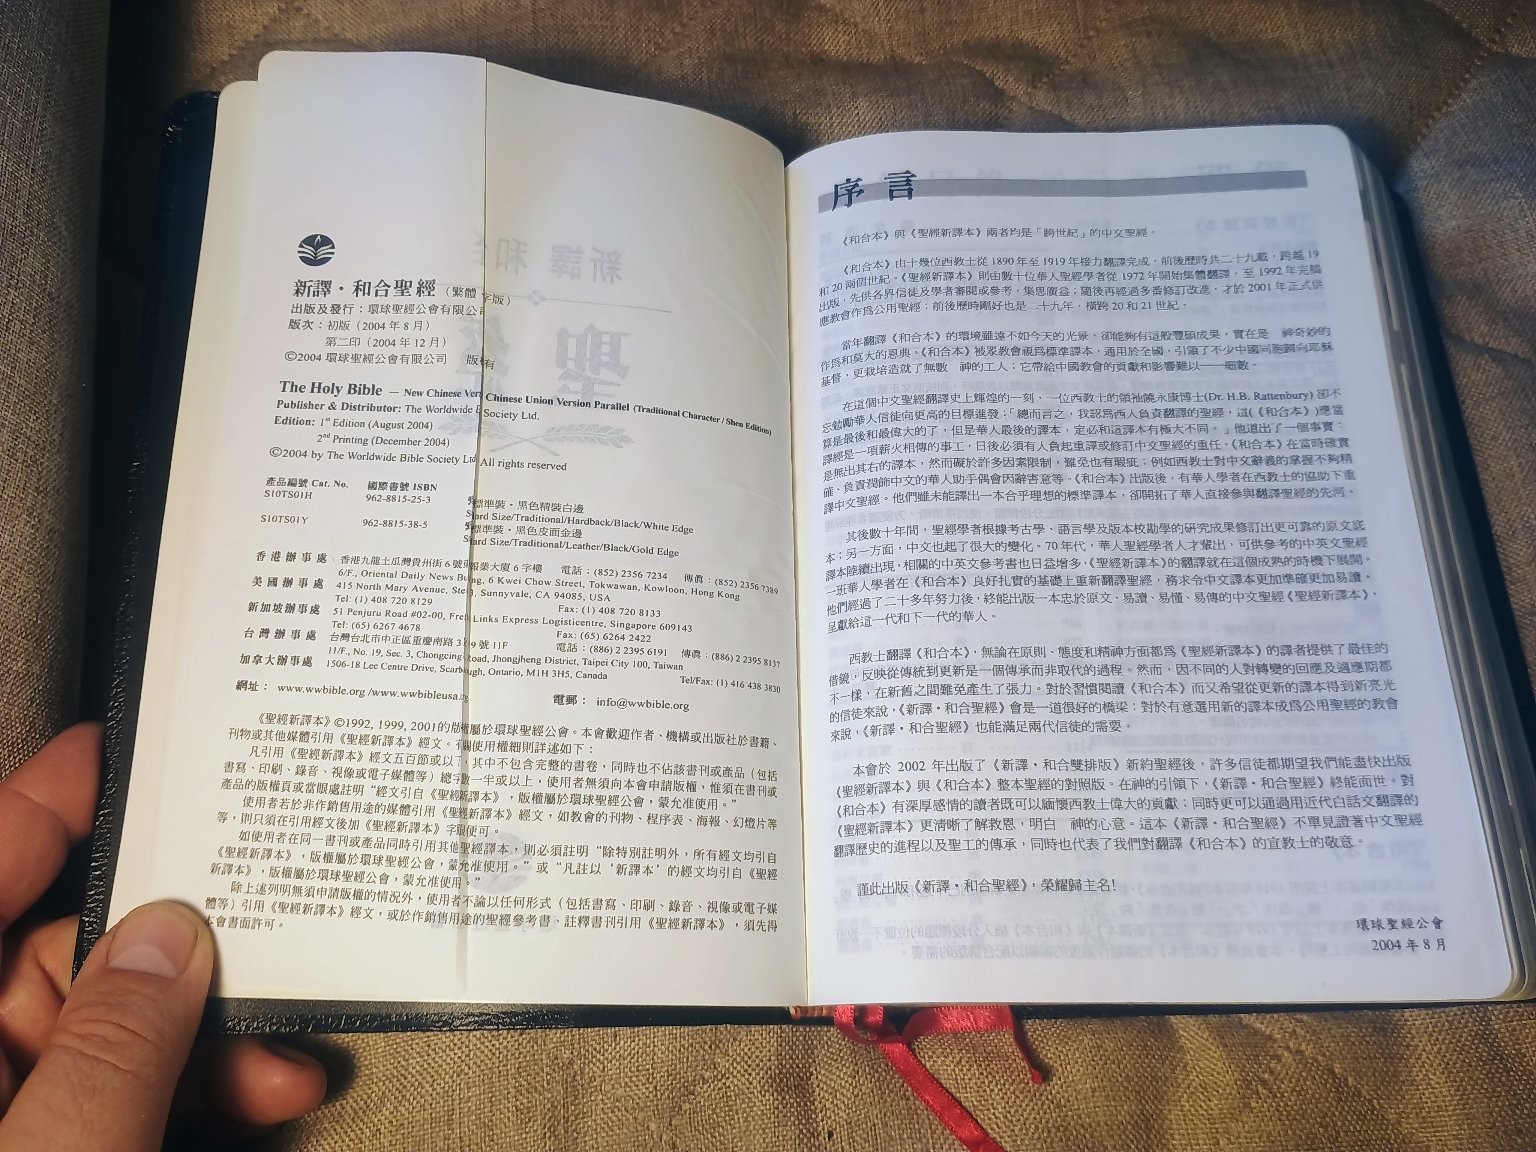 新譯・和合聖經（繁體字版）
出版及發行：環球聖經公會有限公
版次：初版（2004 年 8 月）
第二印（2004 年 12 月）
©2004 環球聖經公會有限公司 版 有
The Holy Bible — New Chinese Ver Chinese Union Version Parallel (Traditional Character / Shen Edition)
Publisher & Distributor: The Worldwide B Society Ltd.
Edition: 1st Edition (August 2004)
2nd Printing (December 2004)
©2004 by The Worldwide Bible Society Ltd All rights reserved
產品編號 Cat. No. 國際書號 ISBN
S10TS01H 962-8815-25-3 標準裝・黑色精裝白邊
ard Size/Traditional/Hardback/Black/White Edge
S10TS01Y 962-8815-38-5 標準裝・黑色皮面金邊
ard Size/Traditional/Leather/Black/Gold Edge
香港辦事處 香港九龍土瓜灣貴州街 6 號 報業大廈 6 字樓 電話：(852) 2356 7234 傳真：(852) 2356 7389
6/F., Oriental Daily News Bu ng, 6 Kwei Chow Street, Tokwawan, Kowloon, Hong Kong
美國辦事處 415 North Mary Avenue, Ste , Sunnyvale, CA 94085, USA
Tel: (1) 408 720 8129 Fax: (1) 408 720 8133
新加坡辦事處 51 Penjuru Road #02-00, Frei Links Express Logisticentre, Singapore 609143
Tel: (65) 6267 4678 Fax: (65) 6264 2422
台灣辦事處 台灣台北市中正區重慶南路 3 9 號 11F 電話：(886) 2 2395 6191 傳真：(886) 2 2395 8137
11/F., No. 19, Sec. 3, Chongcing Road, Jhongjheng District, Taipei City 100, Taiwan
加拿大辦事處 1506-18 Lee Centre Drive, Scarb ugh, Ontario, M1H 3H5, Canada Tel/Fax: (1) 416 438 3830
網址： www.wwbible.org /www.wwbibleusa. 電郵： info@wwbible.org
《聖經新譯本》©1992, 1999, 2001的版權屬於環球聖經公會。本會歡迎作者、機構或出版社於書籍、
刊物或其他媒體引用《聖經新譯本》經文。有關使用權細則詳述如下：
凡引用《聖經新譯本》經文五百節或以下，其中不包含完整的書卷，同時也不佔該書刊或產品（包括
書寫、印刷、錄音、視像或電子媒體等）總字數一半或以上，使用者無須向本會申請版權，惟須在書刊或
產品的版權頁或當眼處註明“經文引自《聖經新譯本》，版權屬於環球聖經公會，蒙允准使用。”
使用者若於非作銷售用途的媒體引用《聖經新譯本》經文，如教會的刊物、程序表、海報、幻燈片等
等，則只須在引用經文後加《聖經新譯本》字眼便可。
如使用者在同一書刊或產品同時引用其他聖經譯本，則必須註明“除特別註明外，所有經文均引自
《聖經新譯本》，版權屬於環球聖經公會，蒙允准使用。”或“凡註以‘新譯本’的經文均引自《聖經
新譯本》，版權屬於環球聖經公會，蒙允准使用。”
除上述列明無須申請版權的情況外，使用者不論以任何形式（包括書寫、印刷、錄音、視像或電子媒
體等）引用《聖經新譯本》經文，或於作銷售用途的聖經參考書、註釋書刊引用《聖經新譯本》，須先得
本會書面許可。
序言
《和合本》與《聖經新譯本》兩者均是「跨世紀」的中文聖經。
《和合本》由十幾位西教士從 1890 年至 1919 年接力翻譯完成，前後歷時共二十九載，跨越 19
和 20 兩個世紀。《聖經新譯本》則由數十位華人聖經學者從 1972 年開始集體翻譯，至 1992 年完稿
出版，先供各界信徒及學者審閱或參考，集思廣益；隨後再經過多番修訂改進，才於 2001 年正式供
應教會作為公用聖經；前後歷時剛好也是二十九年，橫跨 20 和 21 世紀。
當年翻譯《和合本》的環境雖遠不如今天的光景，卻能夠有這般豐碩成果，實在是 神奇妙的
作為和莫大的恩典。《和合本》被眾教會視為標準譯本，通用於全國，引領了不少中國同胞歸向耶穌
基督，更栽培造就了無數 神的工人；它帶給中國教會的貢獻和影響難以一一細數。
在這個中文聖經翻譯史上輝煌的一刻，一位西教士的領袖饒永康博士(Dr. H.B. Rattenbury) 卻不
忘勉勵華人信徒向更高的目標進發：「總而言之，我認為西人負責翻譯的聖經，這(《和合本》)應當
算是最後和最偉大的了，但是華人最後的譯本，定必和這譯本有極大不同。」他道出了一個事實：
譯經是一項薪火相傳的事工，日後必須有人負起重譯或修訂中文聖經的重任。《和合本》在當時確實
是無出其右的譯本，然而礙於許多因素限制，難免也有瑕疵；例如西教士對中文辭義的掌握不夠精
確、負責潤飾中文的華人助手偶會因辭害意等。《和合本》出版後，有華人學者在西教士的協助下重
譯中文聖經。他們雖未能譯出一本合乎理想的標準譯本，卻開拓了華人直接參與翻譯聖經的先河。
其後數十年間，聖經學者根據考古學、語言學及版本校勘學的研究成果修訂出更可靠的原文底
本；另一方面，中文也起了很大的變化。70 年代，華人聖經學者人才輩出，可供參考的中英文聖經
譯本陸續出現，相關的中英文參考書也日益增多，《聖經新譯本》的翻譯就在這個成熟的時機下展開。
一班華人學者在《和合本》良好扎實的基礎上重新翻譯聖經，務求令中文譯本更加準確更加易讀。
他們經過了二十多年努力後，終能出版一本忠於原文、易讀、易懂、易傳的中文聖經《聖經新譯本》，
呈獻給這一代和下一代的華人。
西教士翻譯《和合本》，無論在原則、態度和精神方面都為《聖經新譯本》的譯者提供了最佳的
借鏡，反映從傳統到更新是一個傳承而非取代的過程。然而，因不同的人對轉變的回應及適應期都
不一樣，在新舊之間難免產生了張力。對於習慣閱讀《和合本》而又希望從更新的譯本得到新亮光
的信徒來說，《新譯・和合聖經》會是一道很好的橋梁；對於有意選用新的譯本成為公用聖經的教會
來說，《新譯・和合聖經》也能滿足兩代信徒的需要。
本會於 2002 年出版了《新譯・和合雙排版》新約聖經後，許多信徒都期望我們能盡快出版
《聖經新譯本》與《和合本》整本聖經的對照版。在神的引領下，《新譯・和合聖經》終能面世。對
《和合本》有深厚感情的讀者既可以緬懷西教士偉大的貢獻；同時更可以通過用近代白話文翻譯的
《聖經新譯本》更清晰了解救恩，明白 神的心意。這本《新譯・和合聖經》不單見證著中文聖經
翻譯歷史的進程以及聖工的傳承，同時也代表了我們對翻譯《和合本》的宣教士的敬意。
謹此出版《新譯・和合聖經》，榮耀歸主名！
環球聖經公會
2004 年 8 月